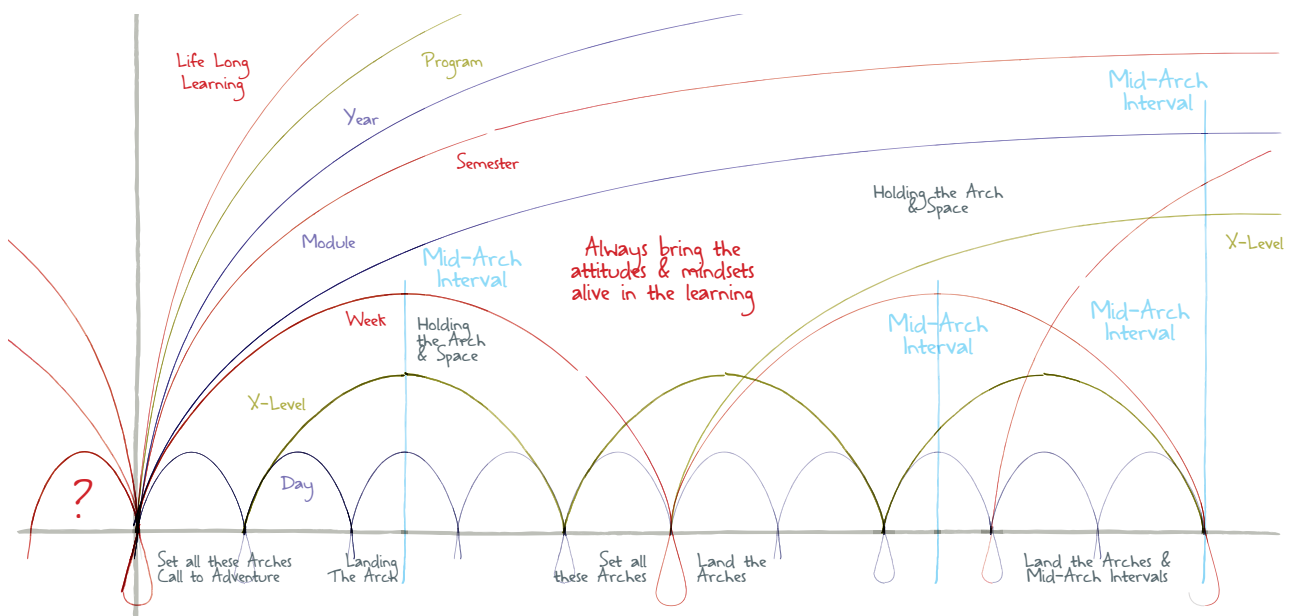 Life Long
Learning
Program
Year
Semester
Module
Mid-Arch
Interval
Holding the Arch
& Space
X-Level
Always bring the
attitudes & mindsets
alive in the learning
Mid-Arch
Interval
Week
Holding
the Arch
& Space
Mid-Arch
Interval
Mid-Arch
Interval
X-Level
Day
?
Set all these Arches
Call to Adventure
Landing
The Arch
Set all
these Arches
Land the
Arches
Land the Arches &
Mid-Arch Intervals